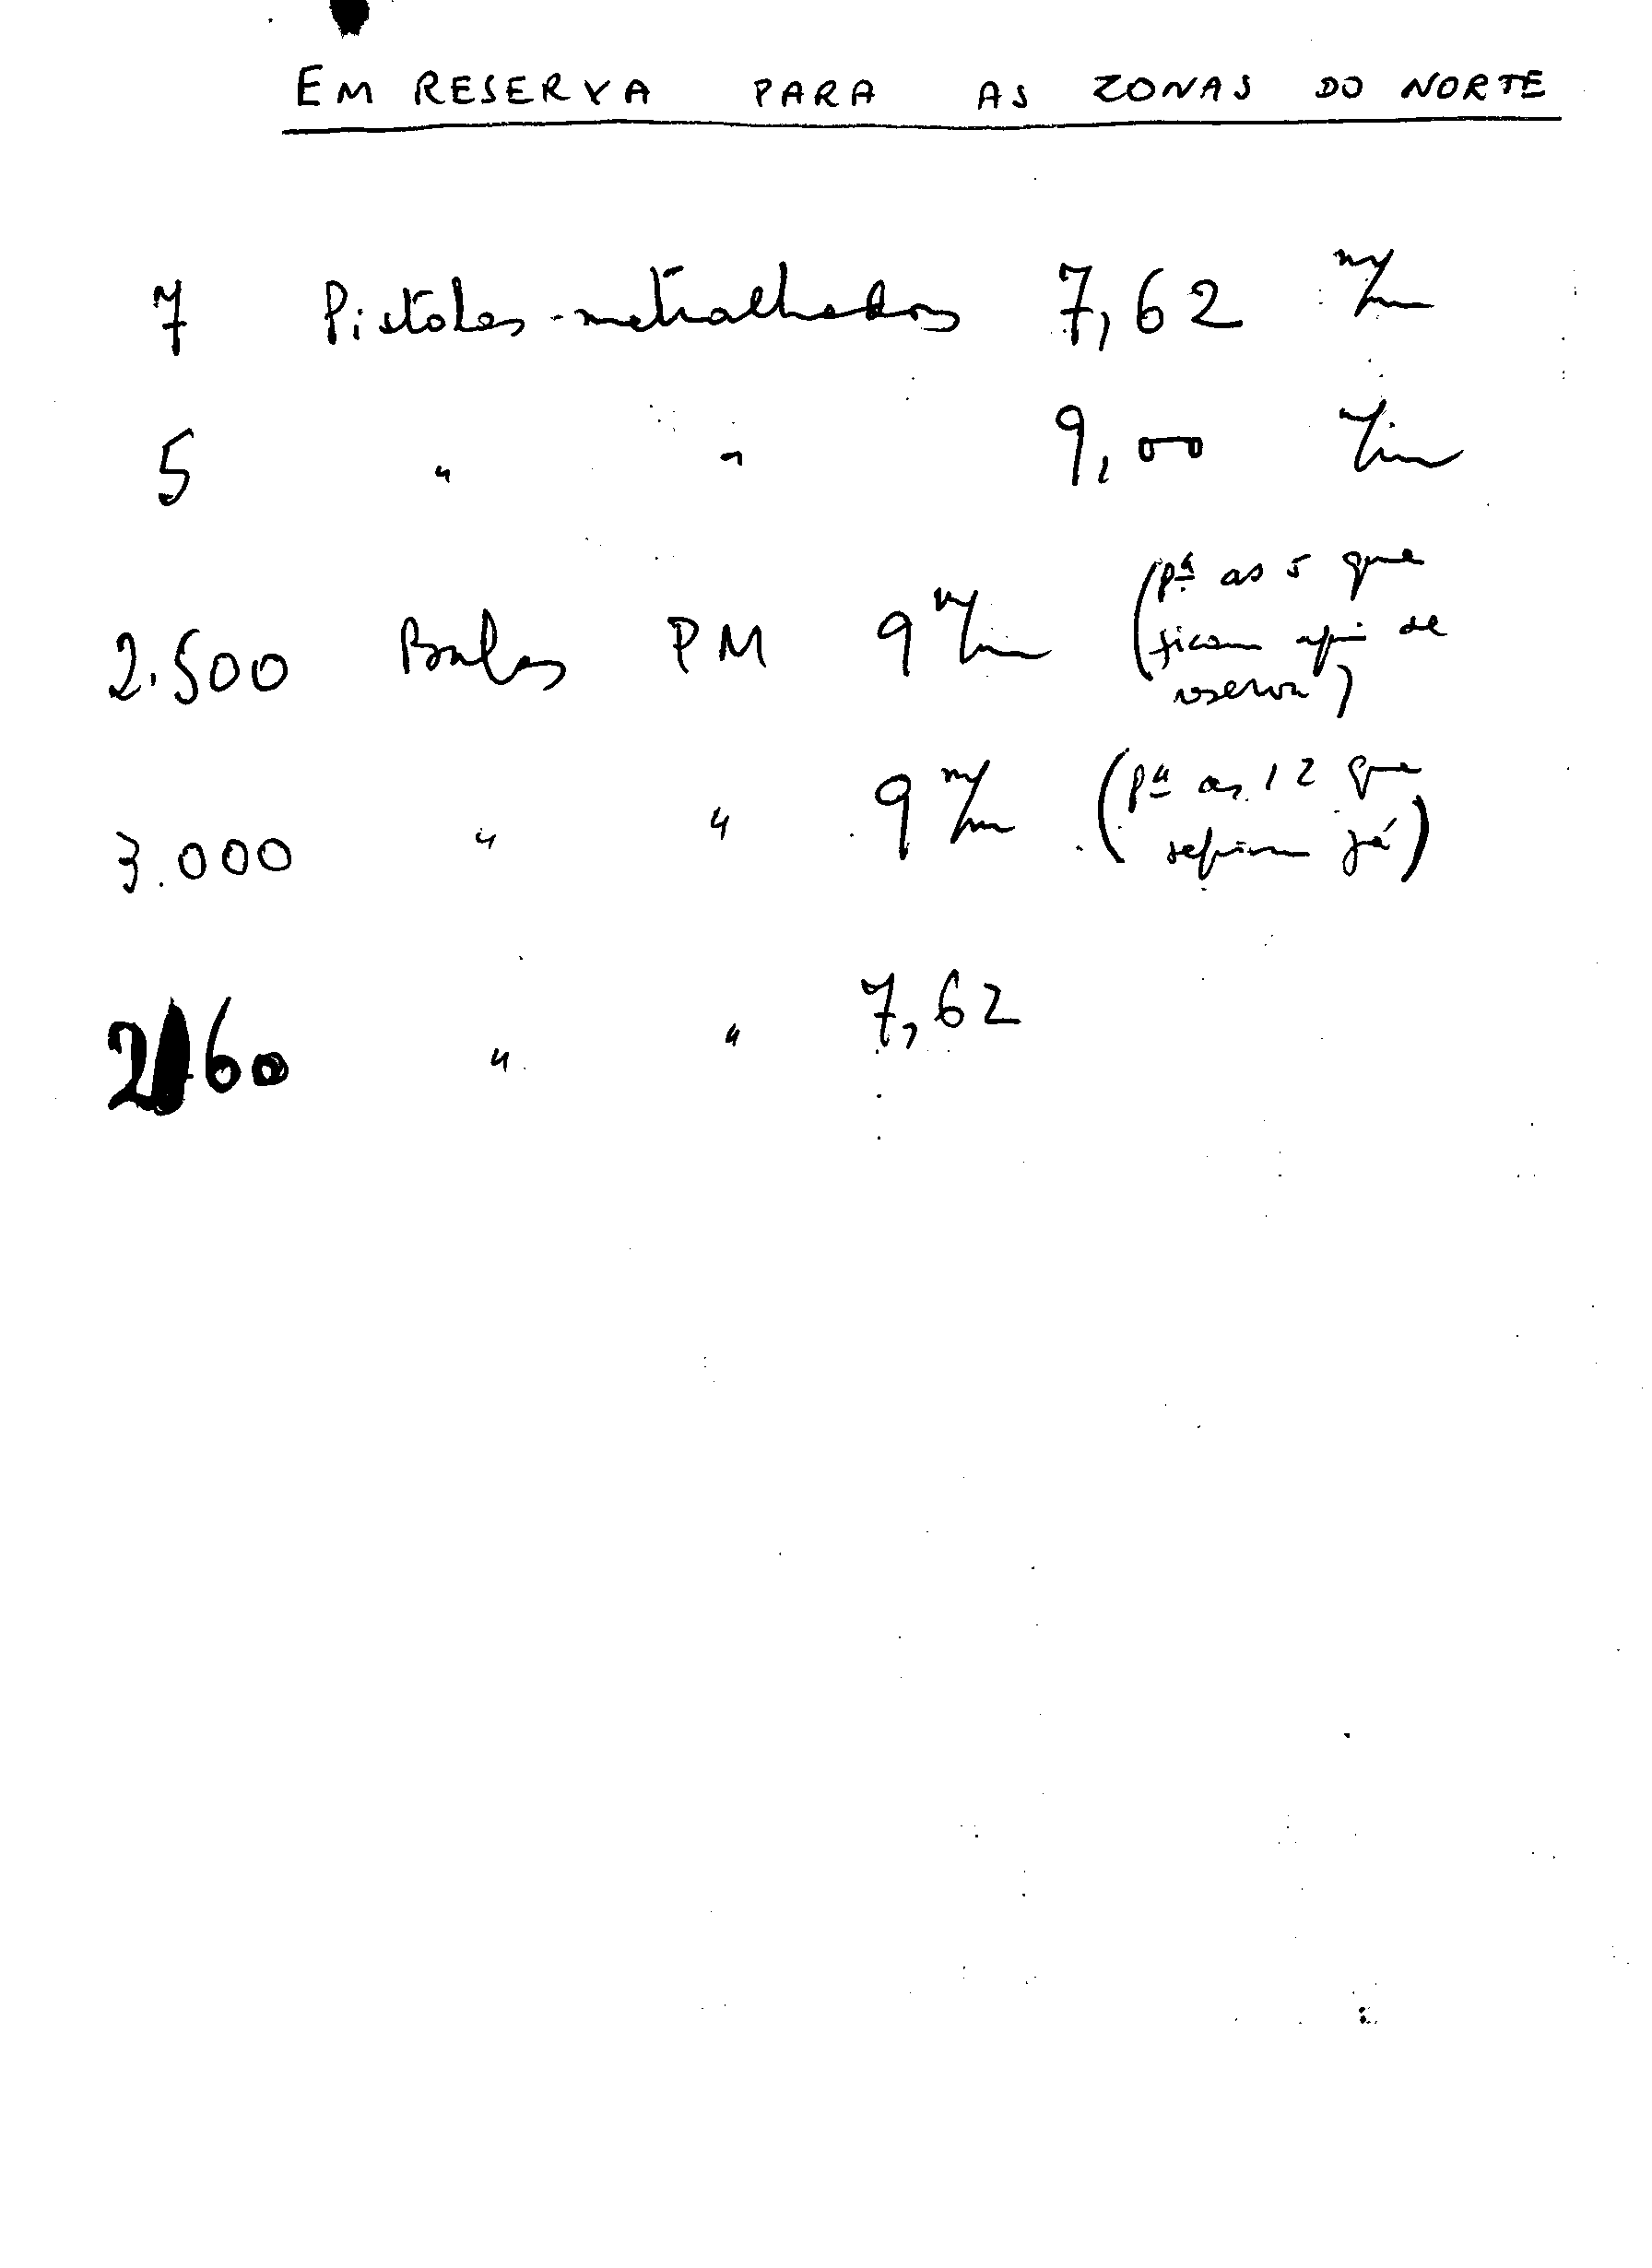 EM RESERVA PARA AS ZONAS DO NORTE
7 Pistolas-metralhadoras 7,62 m/m
5 " " 9,00 m/m
2.500 Balas PM 9 m/m (pª as 5 que
ficam aqui de
reserva)
3.000 " " 9 m/m (pª as 12 que
seguem já)
" " 7,62